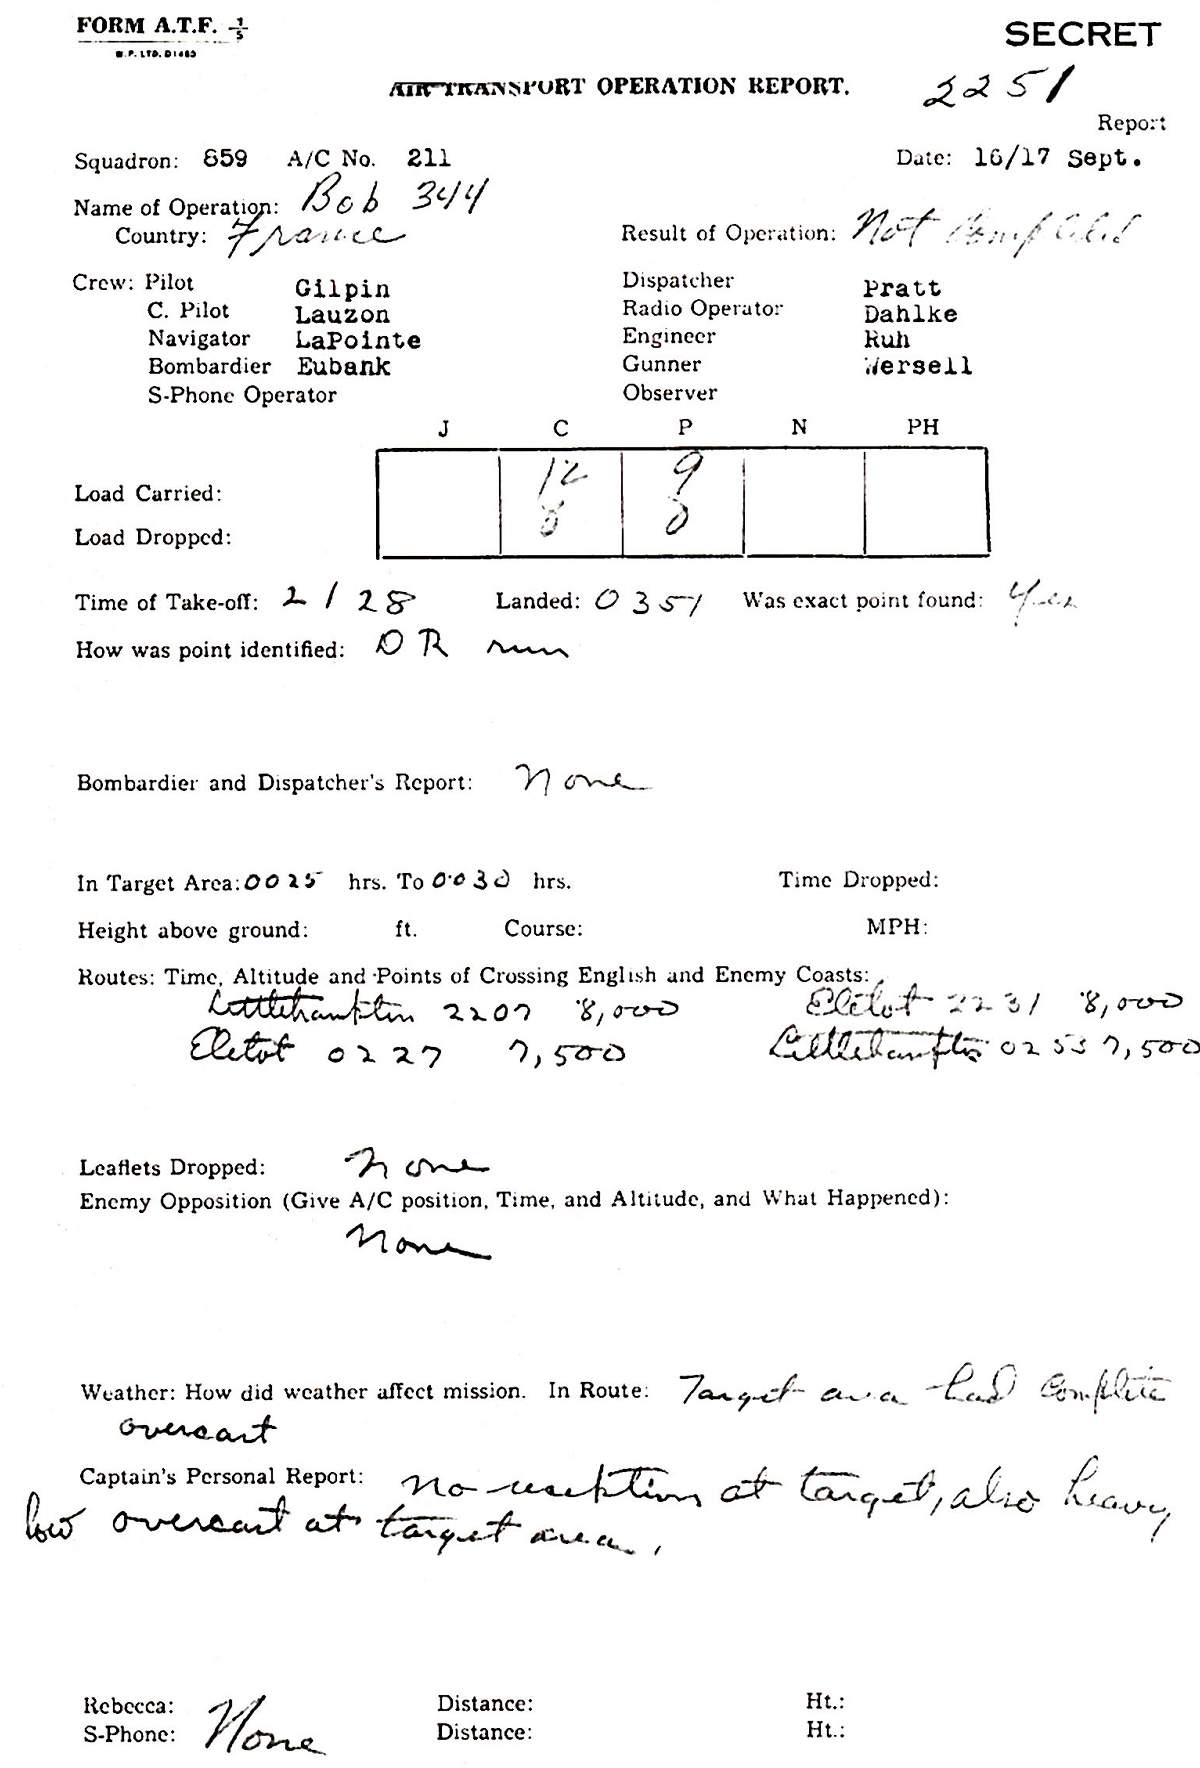 FORM A.T.F. 1/5
W.P. LTD. D1485
SECRET
AIR TRANSPORT OPERATION REPORT.
2251
Report
Squadron: 859 A/C No. 211 Date: 16/17 Sept.
Name of Operation: Bob 344
Country: France Result of Operation: Not Completed
Crew: Pilot Gilpin Dispatcher Pratt
C. Pilot Lauzon Radio Operator Dahlke
Navigator LaPointe Engineer Ruh
Bombardier Eubank Gunner Wersell
S-Phone Operator Observer
J C P N PH
Load Carried: 12 9
Load Dropped: 0 0
Time of Take-off: 2128 Landed: 0351 Was exact point found: Yes
How was point identified: DR run
Bombardier and Dispatcher's Report: None
In Target Area: 0025 hrs. To 0030 hrs. Time Dropped:
Height above ground: ft. Course: MPH:
Routes: Time, Altitude and Points of Crossing English and Enemy Coasts:
Littlehampton 2207 8,000 Eletot 2231 8,000
Eletot 0227 7,500 Littlehampton 0253 7,500
Leaflets Dropped: None
Enemy Opposition (Give A/C position, Time, and Altitude, and What Happened):
None
Weather: How did weather affect mission. In Route: Target area had complete
overcast
Captain's Personal Report: No reception at target, also heavy,
low overcast at target area.
Rebecca: Distance: Ht.:
S-Phone: None Distance: Ht.: